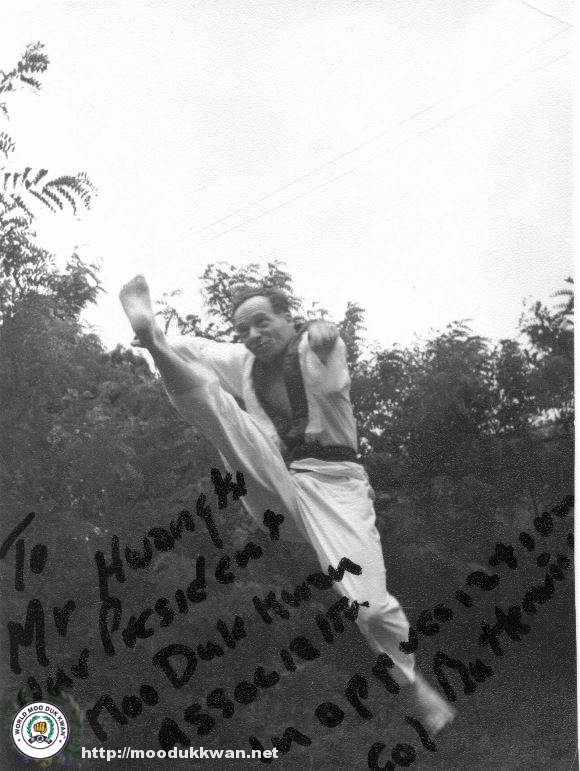 To
Mr Hwang Ki
Our President
Moo Duk Kwan
In appreciation
Col
WORLD MOO DUK KWAN
http://moodukkwan.net